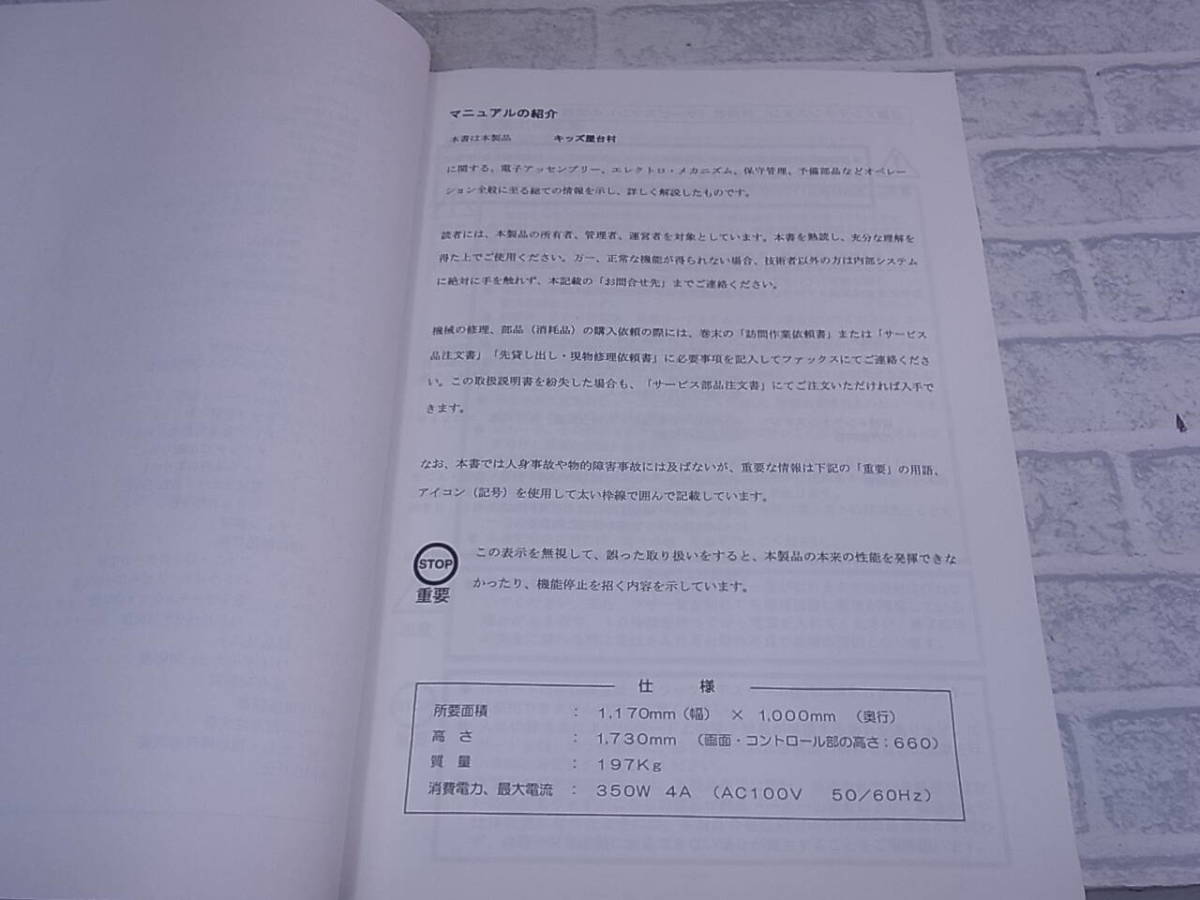 マニュアルの紹介
本書は本製品　キッズ屋台村
に関する、電子アッセンブリー、エレクトロ・メカニズム、保守管理、予備部品などオペレー
ション全般に至る総ての情報を示し、詳しく解説したものです。
読者には、本製品の所有者、管理者、運営者を対象としています。本書を熟読し、充分な理解を
得た上でご使用ください。万一、正常な機能が得られない場合、技術者以外の方は内部システム
に絶対に手を触れず、本記載の「お問合せ先」までご連絡ください。
機械の修理、部品（消耗品）の購入依頼の際には、巻末の「訪問作業依頼書」または「サービス
品注文書」「先貸し出し・現物修理依頼書」に必要事項を記入してファックスにてご連絡くださ
い。この取扱説明書を紛失した場合も、「サービス部品注文書」にてご注文いただければ入手で
きます。
なお、本書では人身事故や物的障害事故には及ばないが、重要な情報は下記の「重要」の用語、
アイコン（記号）を使用して太い枠線で囲んで記載しています。
STOP
重要
この表示を無視して、誤った取り扱いをすると、本製品の本来の性能を発揮できな
かったり、機能停止を招く内容を示しています。
仕　様
所要面積　：　1,170mm（幅）　×　1,000mm　（奥行）
高　さ　：　1,730mm　（画面・コントロール部の高さ：660）
質　量　：　197Kg
消費電力、最大電流　：　350W　4A　（AC100V　50／60Hz）